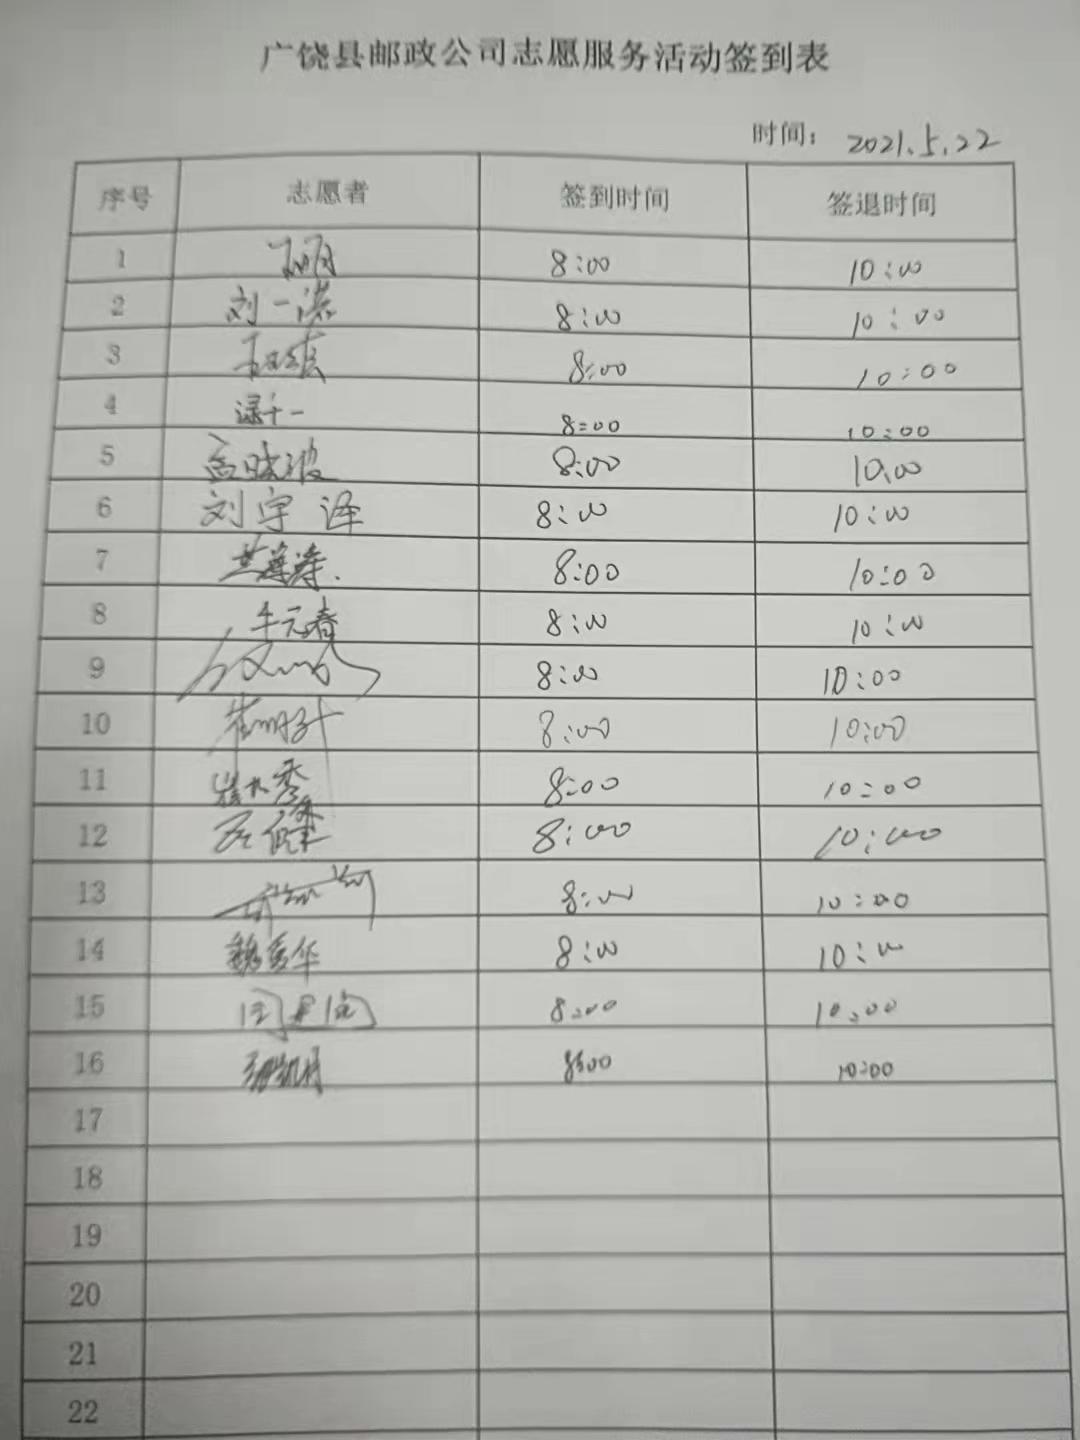 广饶县邮政公司志愿服务活动签到表
时间： 2021.5.22
序号 志愿者 签到时间 签退时间
1 8:00 10:00
2 刘一 8:00 10:00
3 8:00 10:00
4 8:00 10:00
5 孟晓波 8:00 10:00
6 刘宇泽 8:00 10:00
7 兰海涛 8:00 10:00
8 牛元春 8:00 10:00
9 8:00 10:00
10 8:00 10:00
11 崔 秀 8:00 10:00
12 8:00 10:00
13 8:00 10:00
14 魏秀华 8:00 10:00
15 8:00 10:00
16 8:00 10:00
17
18
19
20
21
22